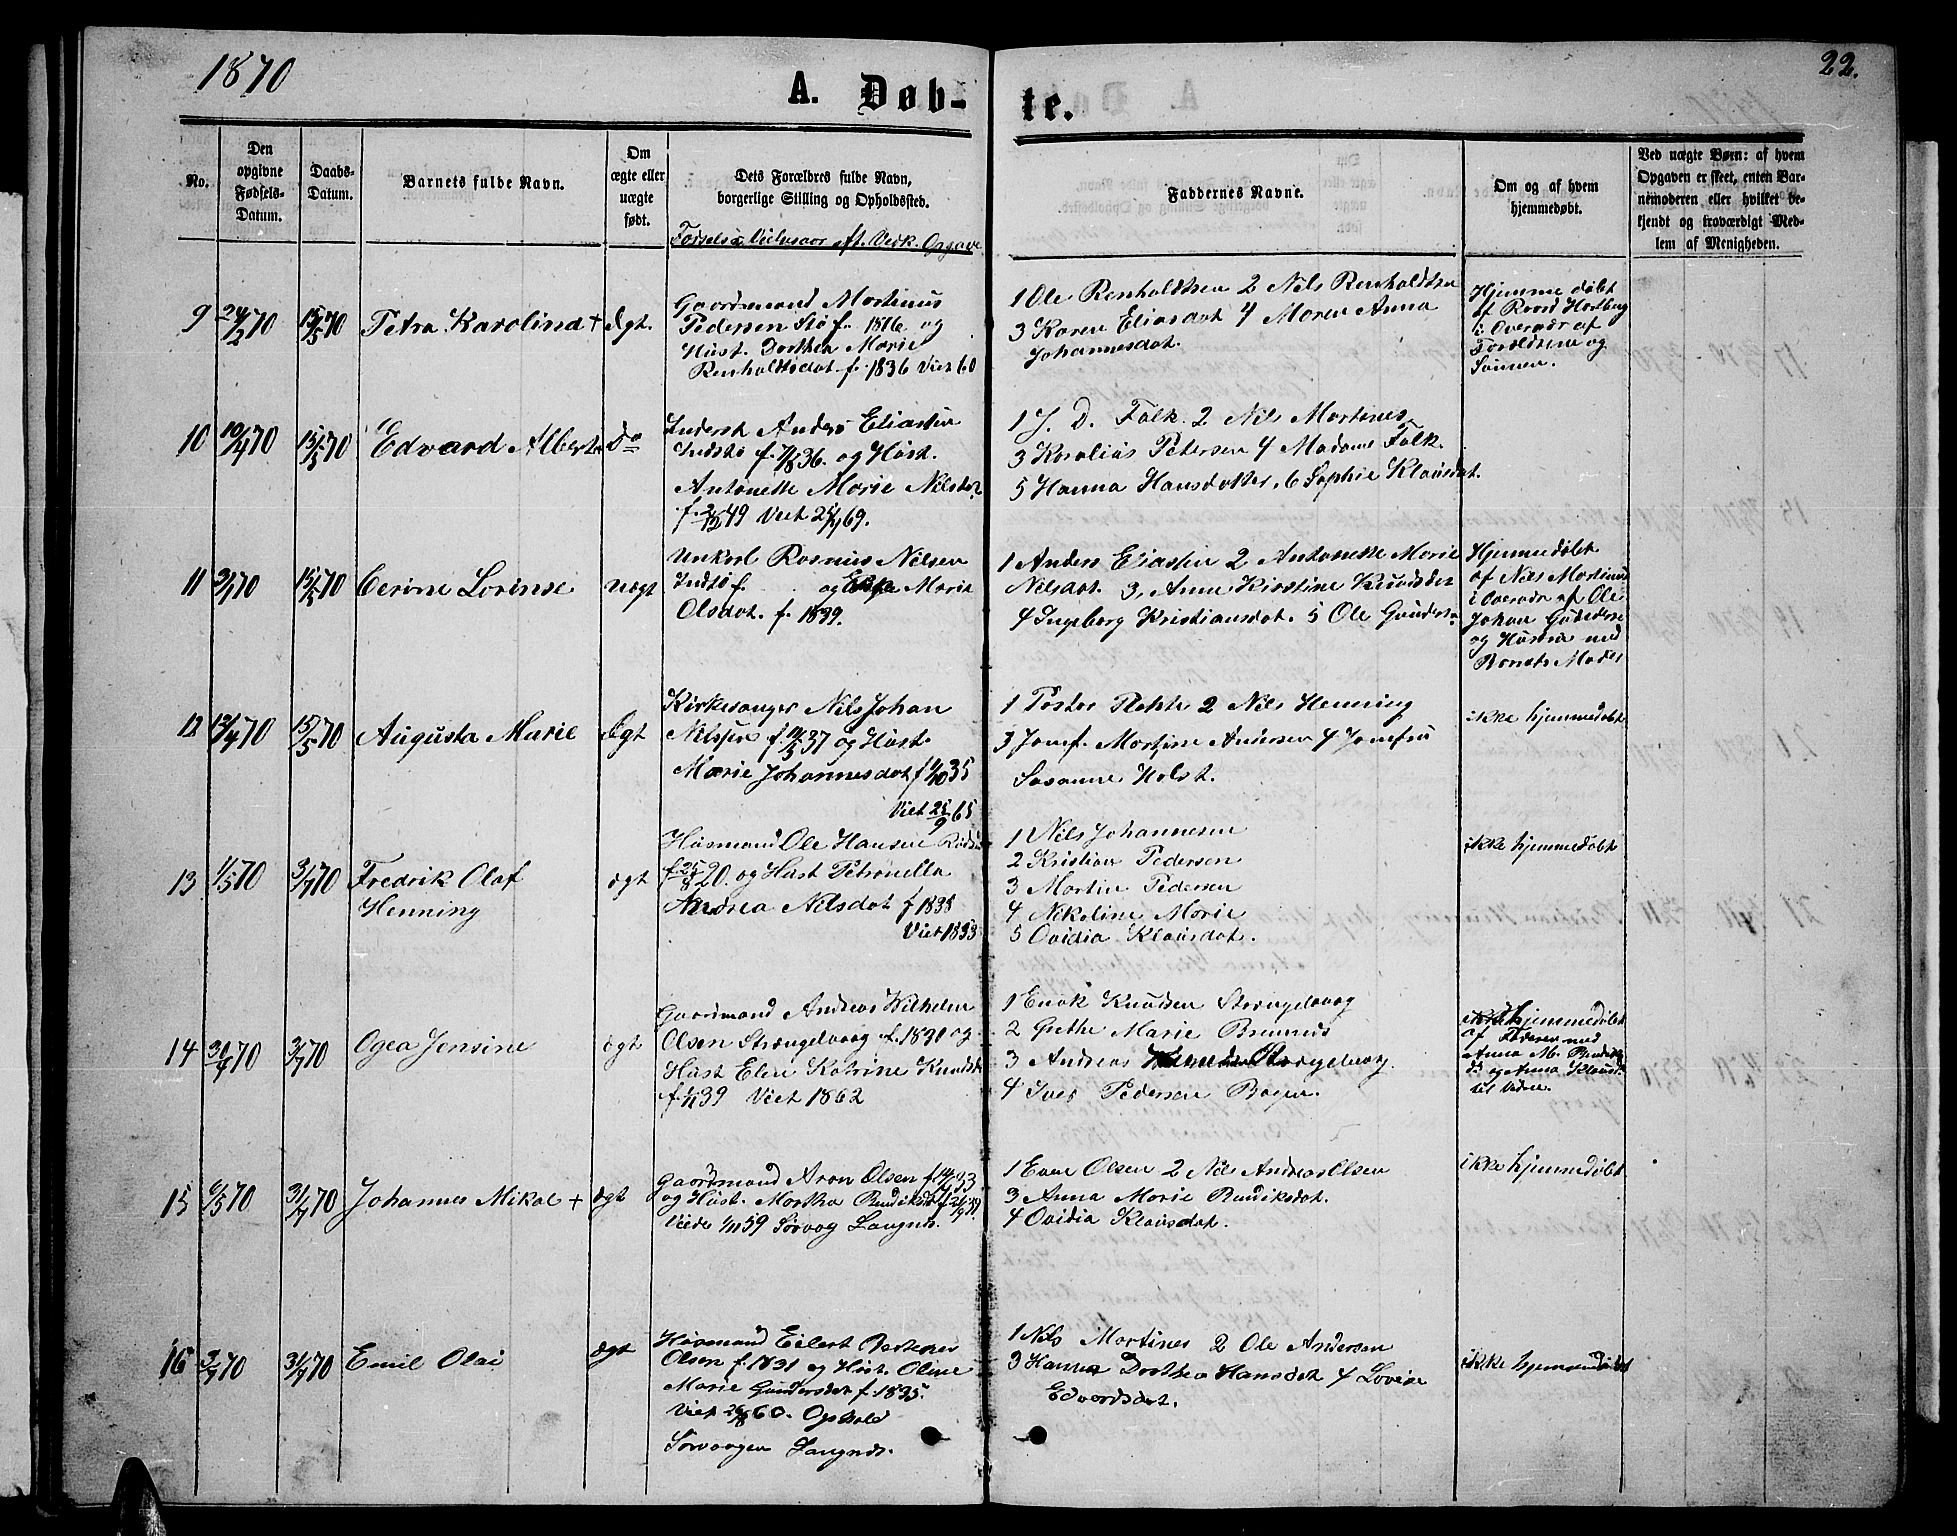 1870
22.
A. Døb-
te.
No.
Den
opgivne
Fødsels-
Datum.
Daabs-
Datum.
Barnets fulde Navn.
Om
ægte eller
uægte
født.
Dets Forældres fulde Navn,
borgerlige Stilling og Opholdssted.
Fødsels og Vielsesaar eft. Vedk. Opgave
Faddernes Navne.
Om og af hvem
hjemmedøbt.
Ved uægte Børn: af hvem
Opgaven er skeet, enten Bar-
nemoderen eller hvilket be-
kjendt og troværdigt Med-
lem af Menigheden.
9 24/2 70 15/5 70 Petra Karolina + Ægt.
Gaardmand Martinus
Pedersen Stø f. 1816 og
Hust. Dorthea Marie
Renholdtsdat f. 1836 Viet 60
1 Ole Renholdtsen 2 Nils Renholdtsen
3 Karen Eliasdat 4 Maren Anna
Johannesdat.
Hjemme døbt
af
i Overvær af
Forældrene og
10 10/4 70 15/5 70 Edvard Albert Do
Inderst Anders Eliassen
Indstø f. 7/8 36. og Hust.
Antonette Marie Nilsdat
f. 2/12 49 Viet 69.
1 J. D. Falk. 2 Nils Martines
3 Koralius Petersen 4 Madame Falk.
5 Hanna Hansdatter, 6 Sophie Klausdat.
11 70 15/5 70 Cerine Lorinse uægt
Unkarl Rasmus Nilsen
Indstø f. og Marie
Olsdat. f. 1839.
1 Anders Eliassen 2 Antonette Marie
Nilsdat. 3, Anne Kirstine Knudsdat
4 Ingeborg Kristiansdat. 5 Ole
Hjemmedøbt
af Nils Martinus
i Overvær af Ole
Johan
og Hustru med
Barnets Moder
12 12/4 70 15/5 70 Augusta Marie Ægt
Kirkesanger Nils Johan
Nilssen f. 37 og Hust.
Marie Johannesdat f 1/10 35
Viet 25/9 65
1 Pastor 2 Nils Henning
3 Jomf. Martine Andersen 4 Jomfru
Susanne Holst.
ikke hjemmedøbt
13 1/5 70 3/7 70 Fredrik Olaf
Henning
ægt
Husmand Ole Hansen
f. 25/8 20. og Hust Petronella
Andrea Nilsdat f 1838
Viet 1853
1 Nils Johannesen
2 Kristian Pedersen
3 Martin Pedersen
4 Nikoline Marie
5 Ovidia Klausdat.
ikke hjemmedøbt
14 30/4 70 3/7 70 Ogea Jensine ægt
Gaardmand Andreas Wilhelm
Olsen Strængelvaag f. 1831 og
Hust Elen Katrine Knudsd
f. 39 Viet 1862
1 Enok Knudsen Strængelvaag
2 Grethe Marie
3 Andreas Strængelvaag.
4 Iver Pedersen Bogen.
hjemmedøbt
af Faderen med
Anna M.
og Anna Klausd.
til Vidne.
15 6/5 70 3/7 70 Johannes Mikal + ægt
Gaardmand Aron Olsen f. 33
og Hust. Martha Bendiksdat f.
Viede 1/11 59 Sørvog Langnes.
1 Enok Olsen 2 Nils Andreas Olsen
3 Anna Marie Bendiksdat.
4 Ovidia Klausdat.
ikke hjemmedøbt
16 70 3/7 70 Emil Olai ægt
Husmand Eilert
Olsen f. 1831 og Hust. Oline
Marie Gundersdat f. 1835.
Viet 60. Ophold
Sørvaagen Langnes.
1 Nils Martines 2 Ole Andersen
3 Hanna Dorthea Hansdat 4 Lovise
Edvardsdat.
ikke hjemmedøbt